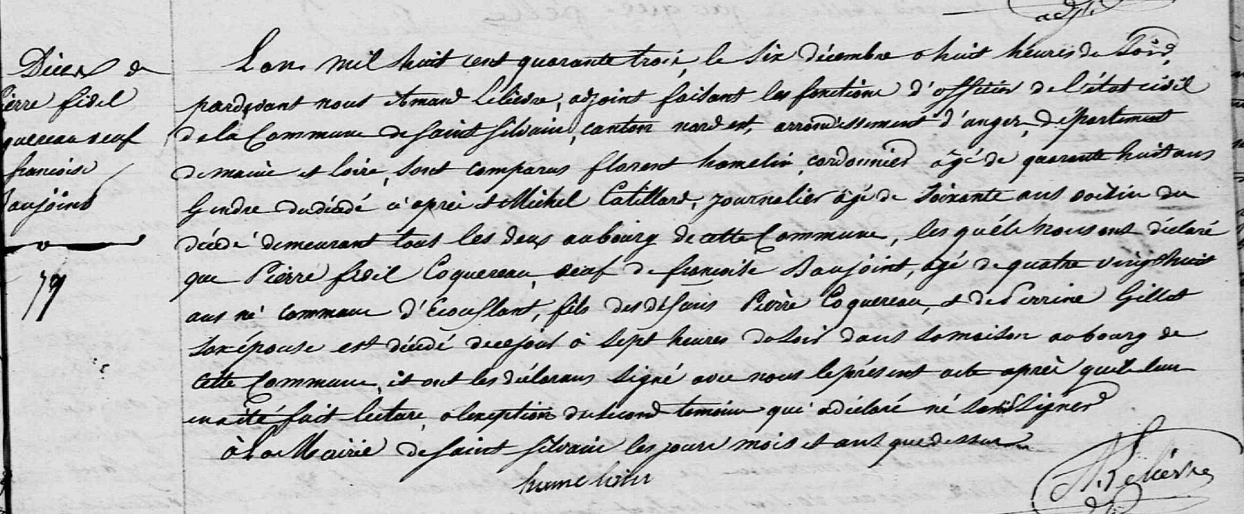 adjt
Décès de
ierre fidel
quereau veuf
françoise
aujoint
79
L'an mil huit cent quarante trois, le six décembre a huit heures du soir,
pardevant nous Amand Lelièvre, adjoint faisant les fonctions d'officier de l'état civil
de la Commune de Saint Silvain, canton nord est, arrondissement d'anger, département
de maine et loire, sont comparus florent hamelin, cordonnier âgé de quarante huit ans
Gendre du décédé ci après et Michel Catillard, journalier âgé de soixante ans voisin du
décédé demeurant tous les deux au bourg de cette Commune, les quéls nous ont déclaré
que Pierre fidil Coquereau, veuf de françoise Saujoint, agé de quatre vingt huit
ans né commune d'Ecouflant, fils des défunts Pierre Coquereau, et de Perrine Gillet
son épouse est décédé ce jour à sept heures du soir dans sa maison au bourg de
cette Commune, et ont les déclarans signé avec nous le présent acte après qu'il leur
en a été fait lecture, a l'exception du second temoin qui a déclaré né savoir signer
à la Mairie de Saint Silvain les jours mois et ans que dessus
hamelin
A. Lelièvre
adjt